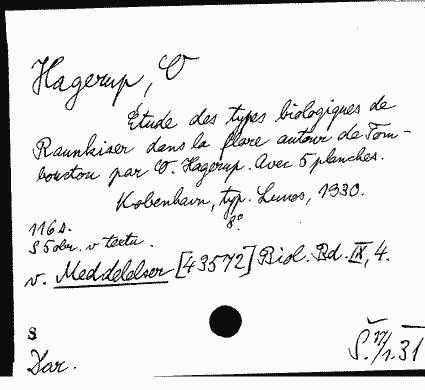 Hagerup, O
Étude des types biologiques de
Raunkiaer dans la flore autour de Tom-
bouctou par O. Hagerup. Avec 5 planches.
Kobenhavn, typ. Lunos, 1930.
8°.
116 s.
S 5 obr. v textu.
v. Meddelelser [43572] Biol. Bd. IX, 4.
S
Dar.